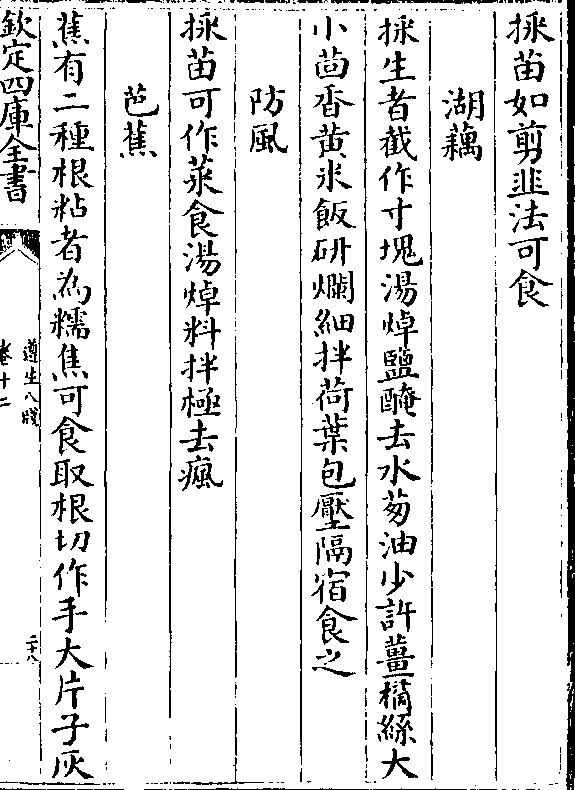 採苗如剪韭法可食
湖藕
採生者截作寸塊湯焯鹽醃去水葱油少許薑橘絲大
小茴香黄米飯研爛細拌荷葉包壓隔宿食之
防風
採苗可作菜食湯焯料拌極去瘋
芭蕉
蕉有二種根粘者為糯蕉可食取根切作手大片子灰
欽定四庫全書
遵生八牋
卷十二
二十八